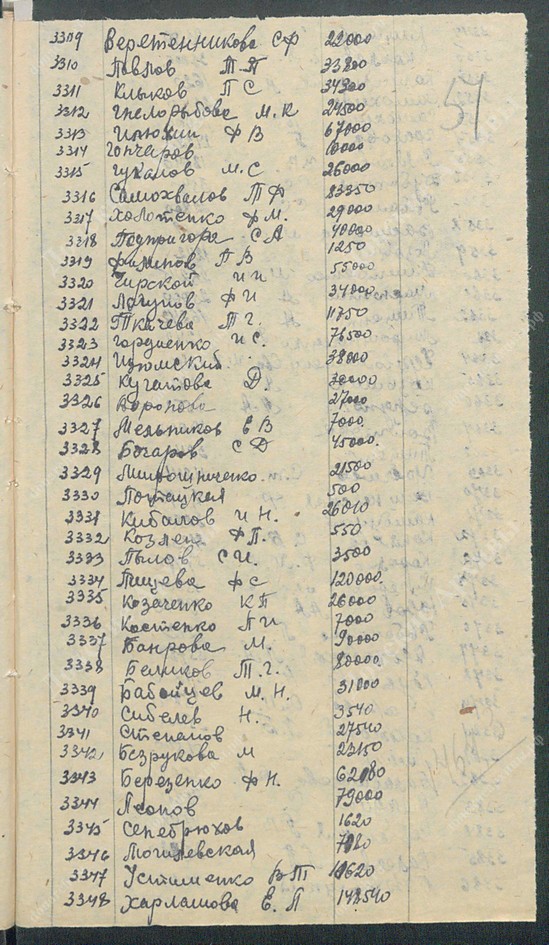 51
3309 Веретенникова СФ 22000
3310 Павлов Т П 33800
3311 Клыков П С 34300
3312 М. К 24500
3313 Ф В 67000
3314 Гончаров
3315 Гукалов М. С 26000
3316 Самохвалов Т А 83350
3317 Холотенко Ф М. 29000
3318 Подпригора С А 40000
3319 Филипов П В 1250
3320 Чирской И И 55000
3321 Лагунов Ф И 34000
3322 Ткачева Т Г. 11750
3323 Гордиенко И С. 76500
3324 Изюмский. 38000
3325 Кугатова Д 30000
3326 Воронова 27000
3327 Мельников Е В 7000
3328 Бочаров С Д 45000.
3329 21500
3330 Потацкая 500
3331 Кибалов И Н. 26010
3332 Ф П. 550
3333 Пылов С И. 3500
3334 Пищева Ф С 120000.
3335 Козаченко К П 26000
3336 Костенко П И 7000
3337 Баирова М. 90000
3338 Беликов Т. Г. 80000.
3339 Бабайцев М. Н. 31000
3340 Сибелев Н. 3540
3341 Степанов 27540
3342 Безрукова М 23150
3343 Березенко Ф Н.
3344 Леонов 79000
3345 Серебрюхов 1620
3346 Могилевская
3347 Устименко В Т
3348 Харламова Е. П 148540